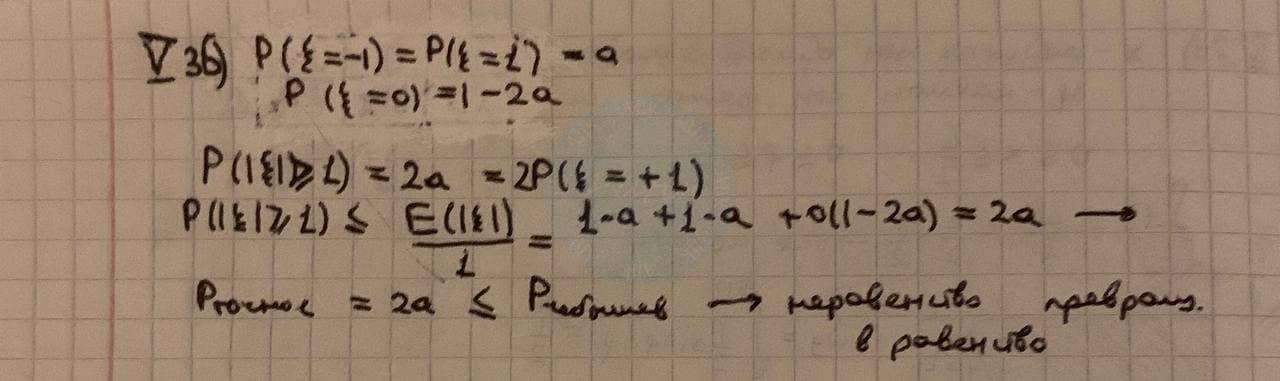 V 3б) P(ξ=-1) = P(ξ=1) = a
P(ξ=0) = 1-2a
P(|ξ|⩾1) = 2a = 2P(ξ=+1)
P(|ξ|⩾1) ≤ E(|ξ|)/1 = 1·a + 1·a + 0(1-2a) = 2a →
Pточное = 2a ≤ Pчебышев → неравенство превращ.
в равенство